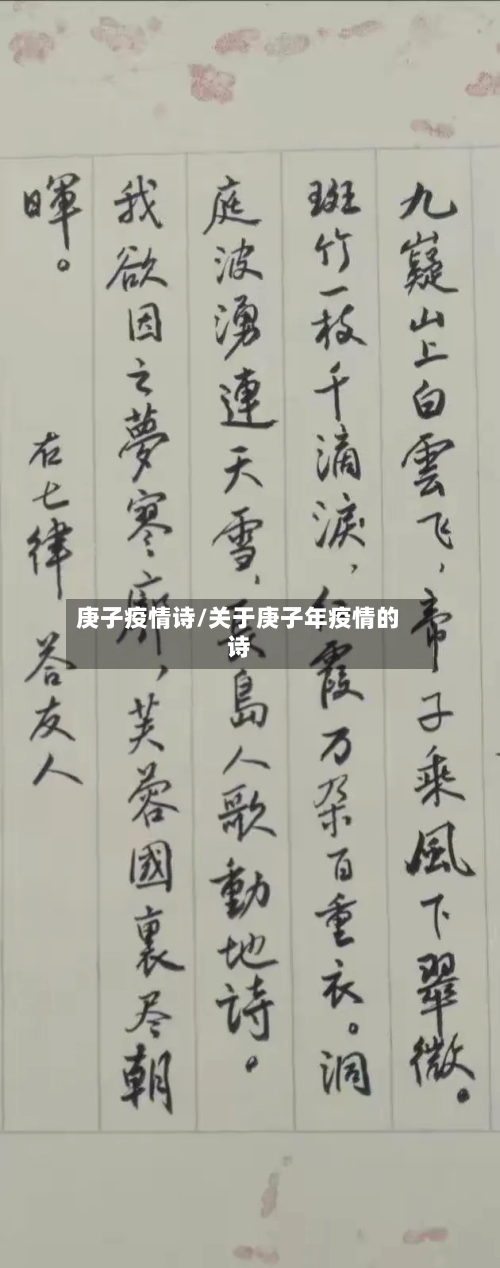 九嶷山上白雲飞，帝子乘風下翠微。
斑竹一枝千滴淚，霞万朶百重衣。洞
庭波湧連天雪，島人歌動地詩。
我欲因之夢寥廓，芙蓉國裏尽朝
暉。
右七律 答友人
庚子疫情诗/关于庚子年疫情的
诗